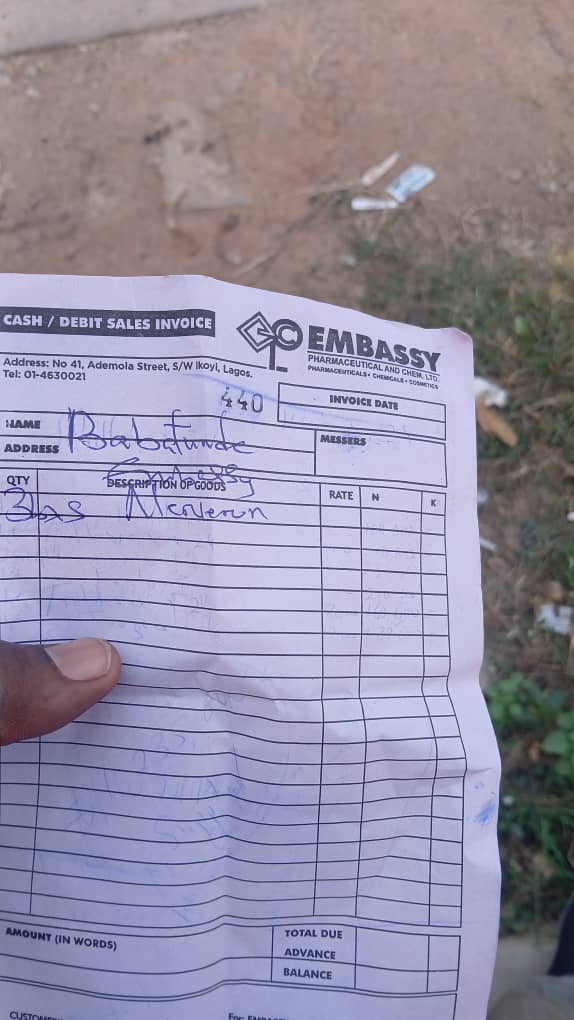 CASH / DEBIT SALES INVOICE
EMBASSY
PHARMACEUTICAL AND CHEM. LTD.
PHARMACEUTICALS • CHEMICALS • COSMETICS
Address: No 41, Ademola Street, S/W Ikoyi, Lagos.
Tel: 01-4630021
440
INVOICE DATE
NAME Babatunde
ADDRESS
MESSERS
Embassy
QTY DESCRIPTION OF GOODS RATE N K
AMOUNT (IN WORDS)
TOTAL DUE
ADVANCE
BALANCE